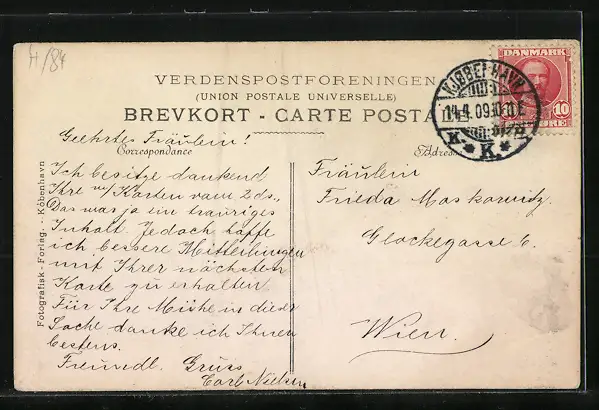 H/84
VERDENSPOSTFORENINGEN
(UNION POSTALE UNIVERSELLE)
BREVKORT - CARTE POSTA
DANMARK
10
ØRE
KJØBENHAVN
K.
Correspondance
Adresse
Geehrtes Fräulein!
Ich besitze dankend
Ihre w/Karten vom 2 ds.,
Das was ja ein trauriges
Inhalt. Jedoch hoffe
ich bessere Mittheilungen
mit Ihrer nächsten
Karte zu erhalten
Für Ihre Mühe in dieser
Sache danke ich Ihnen
bestens.
Freundl. Gruss
Carl Nielsen
Fräulein
Frieda Moskowitz
Glockegasse 6.
Wien.
Fotografisk - Forlag. - Köbenhavn